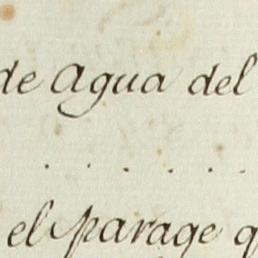 de Agua del
. . . . .
el parage q